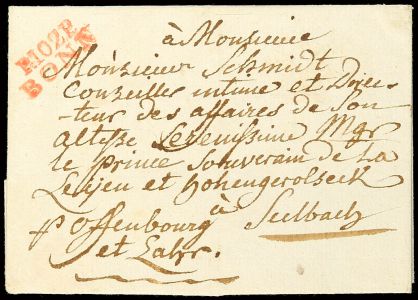 R102P
BONN
à Monsieur
Monsieur Schmidt
Conzeiller intime et Direc-
teur des affaires de Son
altesse Serenissime Mgr
le Prince Souverain de La
Leyen et Hohengerolseck
à
p Offenbourg Seelbach
et Lahr.